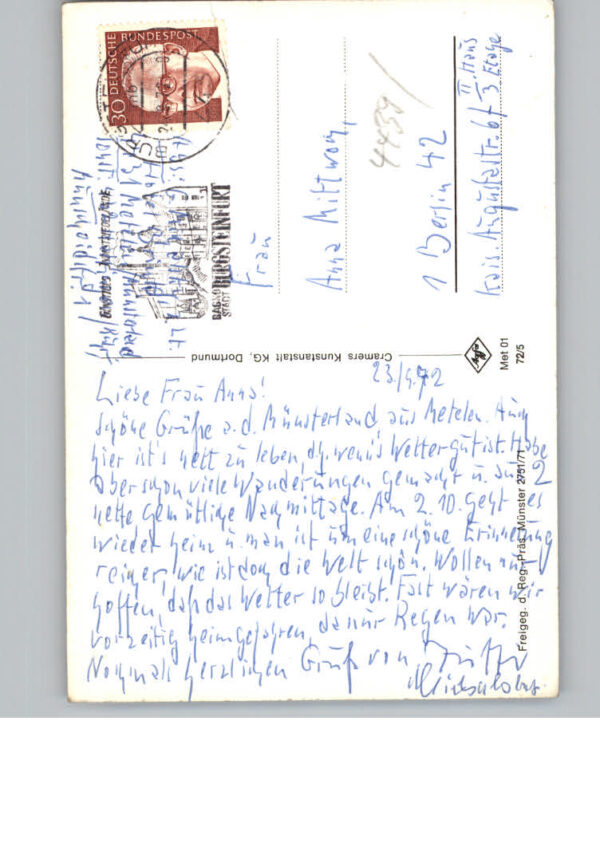 Liebe Frau Anna!
23/9.72
schöne Grüße a.d. Münsterland, aus Metelen. Auch
hier ist's nett zu leben, dh. wenn's Wetter gut ist. Habe
aber schon viele Wanderungen gemacht u. auch 2
nette gemütliche Nachmittage. Am 2.10. geht es
wieder heim u. man ist um eine schöne Erinnerung
reicher, wie ist doch die Welt schön. Wollen nur
hoffen, daß das Wetter so bleibt. Fast wären wir
vorzeitig heimgefahren, da nur Regen war.
Nochmals herzlichen Gruß von
Frau
Anna Mittwoch,
1 Berlin 42
Kais. Augustastr. 67 II. Haus
3 Etage
4439/
30 DEUTSCHE BUNDESPOST
BAGNO
STADT BURGSTEINFURT
Cramers Kunstanstalt KG, Dortmund
Met 01
72/5
Freigeg. d. Reg.-Präs. Münster 2751/71